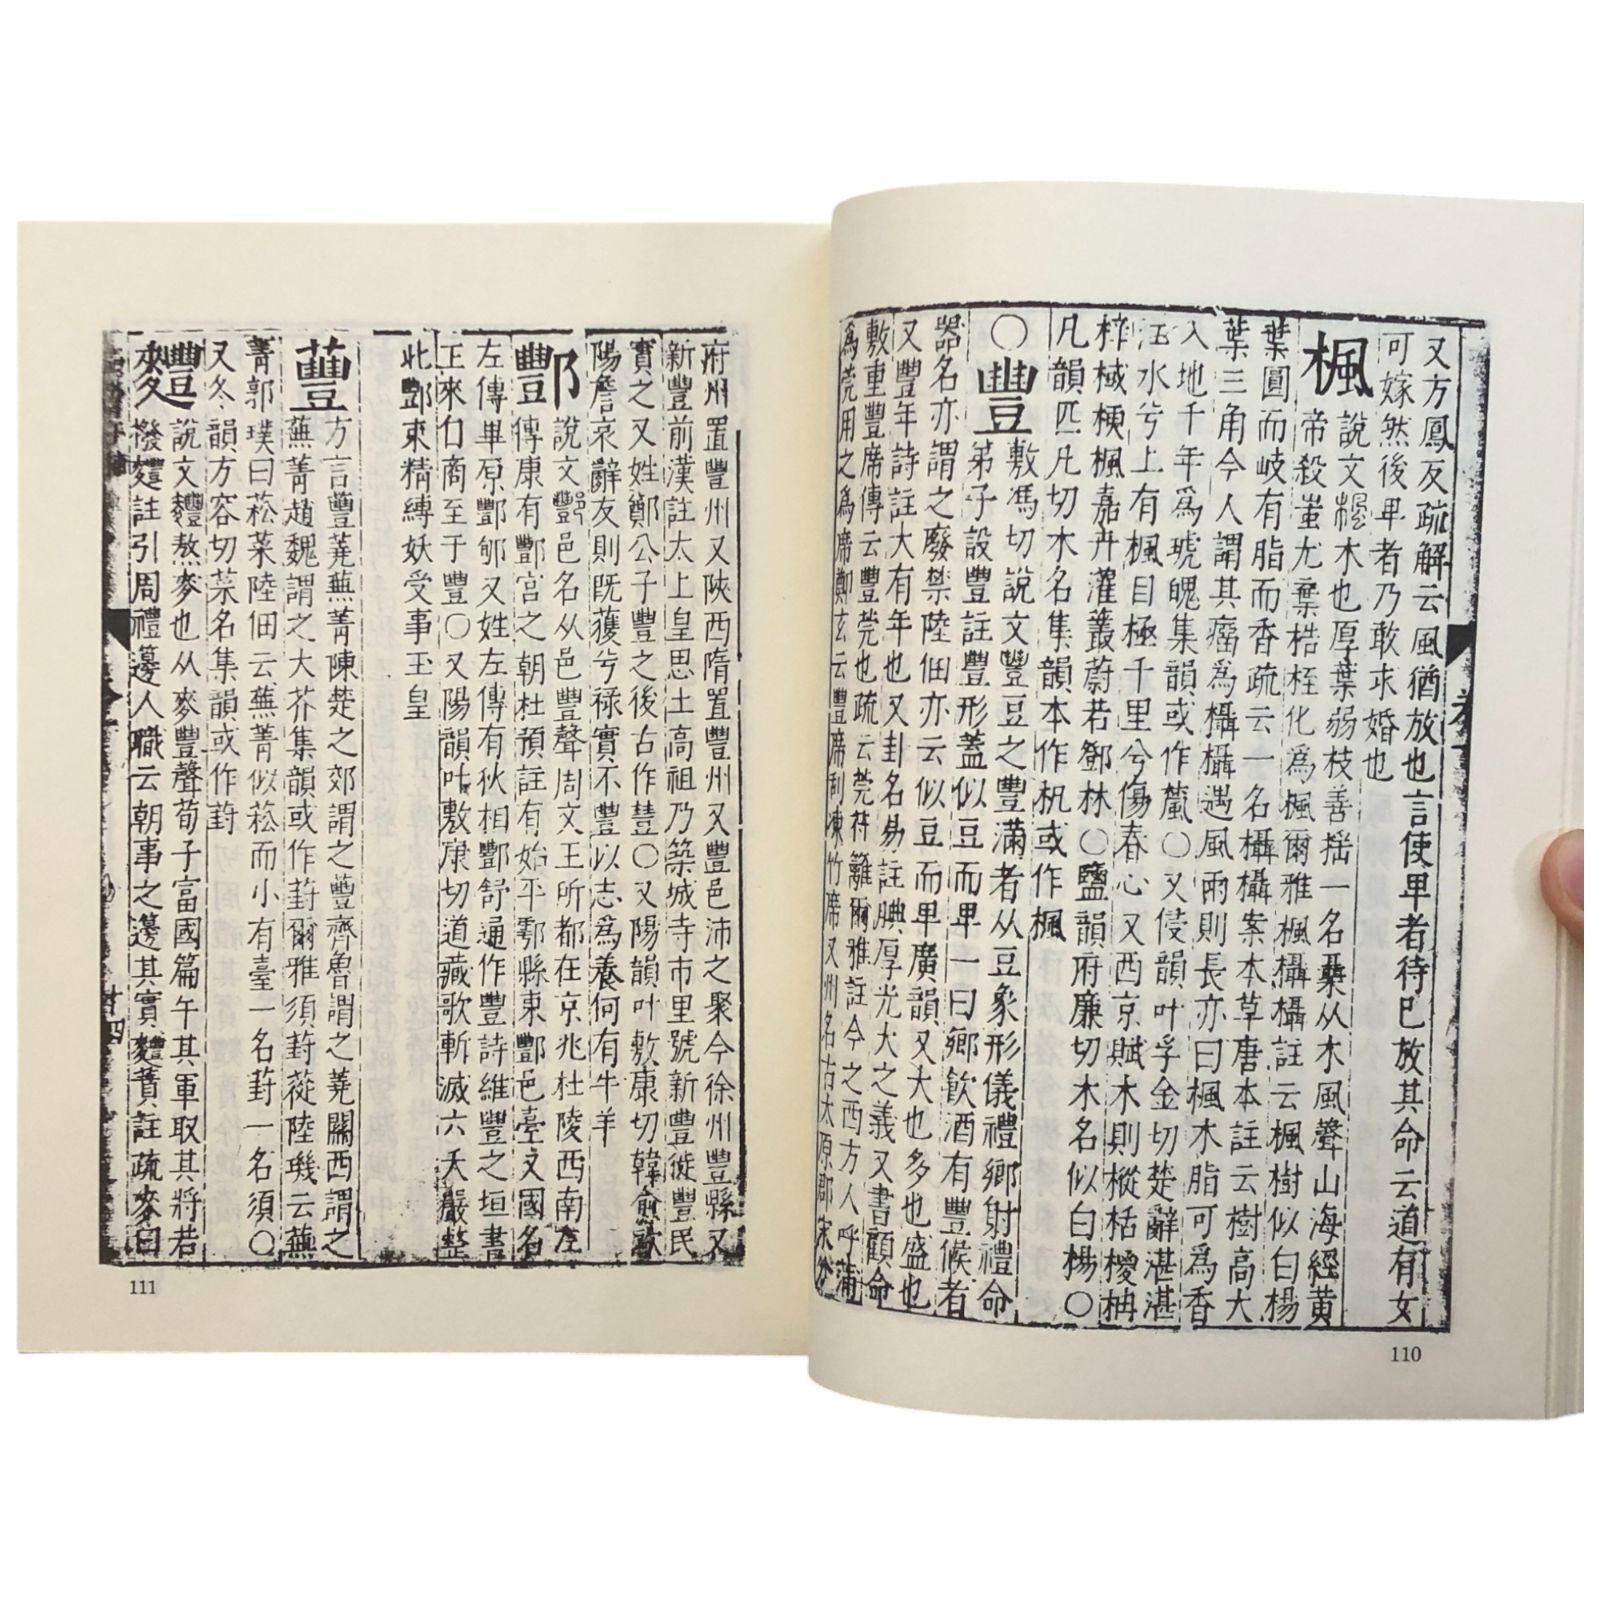 又方鳳友疏解云風猶放也言使卑者待巳放其命云道有女
可嫁然後卑者乃敢求婚也
楓
說文楓木也厚葉弱枝善摇一名欇从木風聲山海經黄
帝殺蚩尤棄桎梏化爲楓爾雅楓欇欇註云楓樹似白楊
葉圓而岐有脂而香疏云一名欇欇案本草唐本註云樹高大
葉三角今人謂其瘤爲欇欇遇風雨則長亦曰楓木脂可爲香
入地千年爲琥魄集韻或作檒○又侵韻叶孚金切楚辭湛湛
江水兮上有楓目極千里兮傷春心又西京賦木則樅栝椶柟
梓棫楩楓嘉卉灌叢蔚若鄧林○鹽韻府廉切木名似白楊○
凡韻匹凡切木名集韻本作杋或作楓
○豐
敷馮切說文豐豆之豐滿者从豆象形儀禮鄉射禮命
弟子設豐註豐形蓋似豆而卑一曰鄉飲酒有豐候者
器名亦謂之廢禁陸佃亦云似豆而卑廣韻又大也多也盛也
又豐年詩註大有年也又卦名易註腆厚光大之義又書顧命
敷重豐席傳云豐莞也疏云莞苻蘺爾雅註今之西方人呼蒲
爲莞用之爲席鄭玄云豐席刮凍竹席又州名古太原郡宋
府州置豐州又陝西隋置豐州又豐邑沛之聚今徐州豐縣又
新豐前漢註太上皇思土高祖乃築城寺市里號新豐徙豐民
實之又姓鄭公子豐之後古作豊○又陽韻叶敷康切韓愈歐
陽詹哀辭友則旣獲兮祿實不豐以志爲養何有牛羊
酆
說文酆邑名从邑豐聲周文王所都在京兆杜陵西南左
傳康有酆宮之朝杜預註有始平鄠縣東酆邑臺文國名
左傳畢原酆郇又姓左傳有狄相酆舒通作豐詩維豐之垣書
王來自商至于豐○又陽韻叶敷康切道藏歌斬滅六天嚴整
此酆束精縛妖受事玉皇
蘴
方言蘴蕘蕪菁陳楚之郊謂之蘴齊魯謂之蕘關西謂之
蕪菁趙魏謂之大芥集韻或作葑爾雅須葑蓯陸璣云蕪
菁郭璞曰菘菜陸佃云蕪菁似菘而小有臺一名葑一名須○
又冬韻方容切菜名集韻或作葑
麷
說文麷熬麥也从麥豐聲荀子富國篇午其軍取其將若
撥麷註引周禮籩人職云朝事之籩其實麷蕡註疏麥曰
111
110